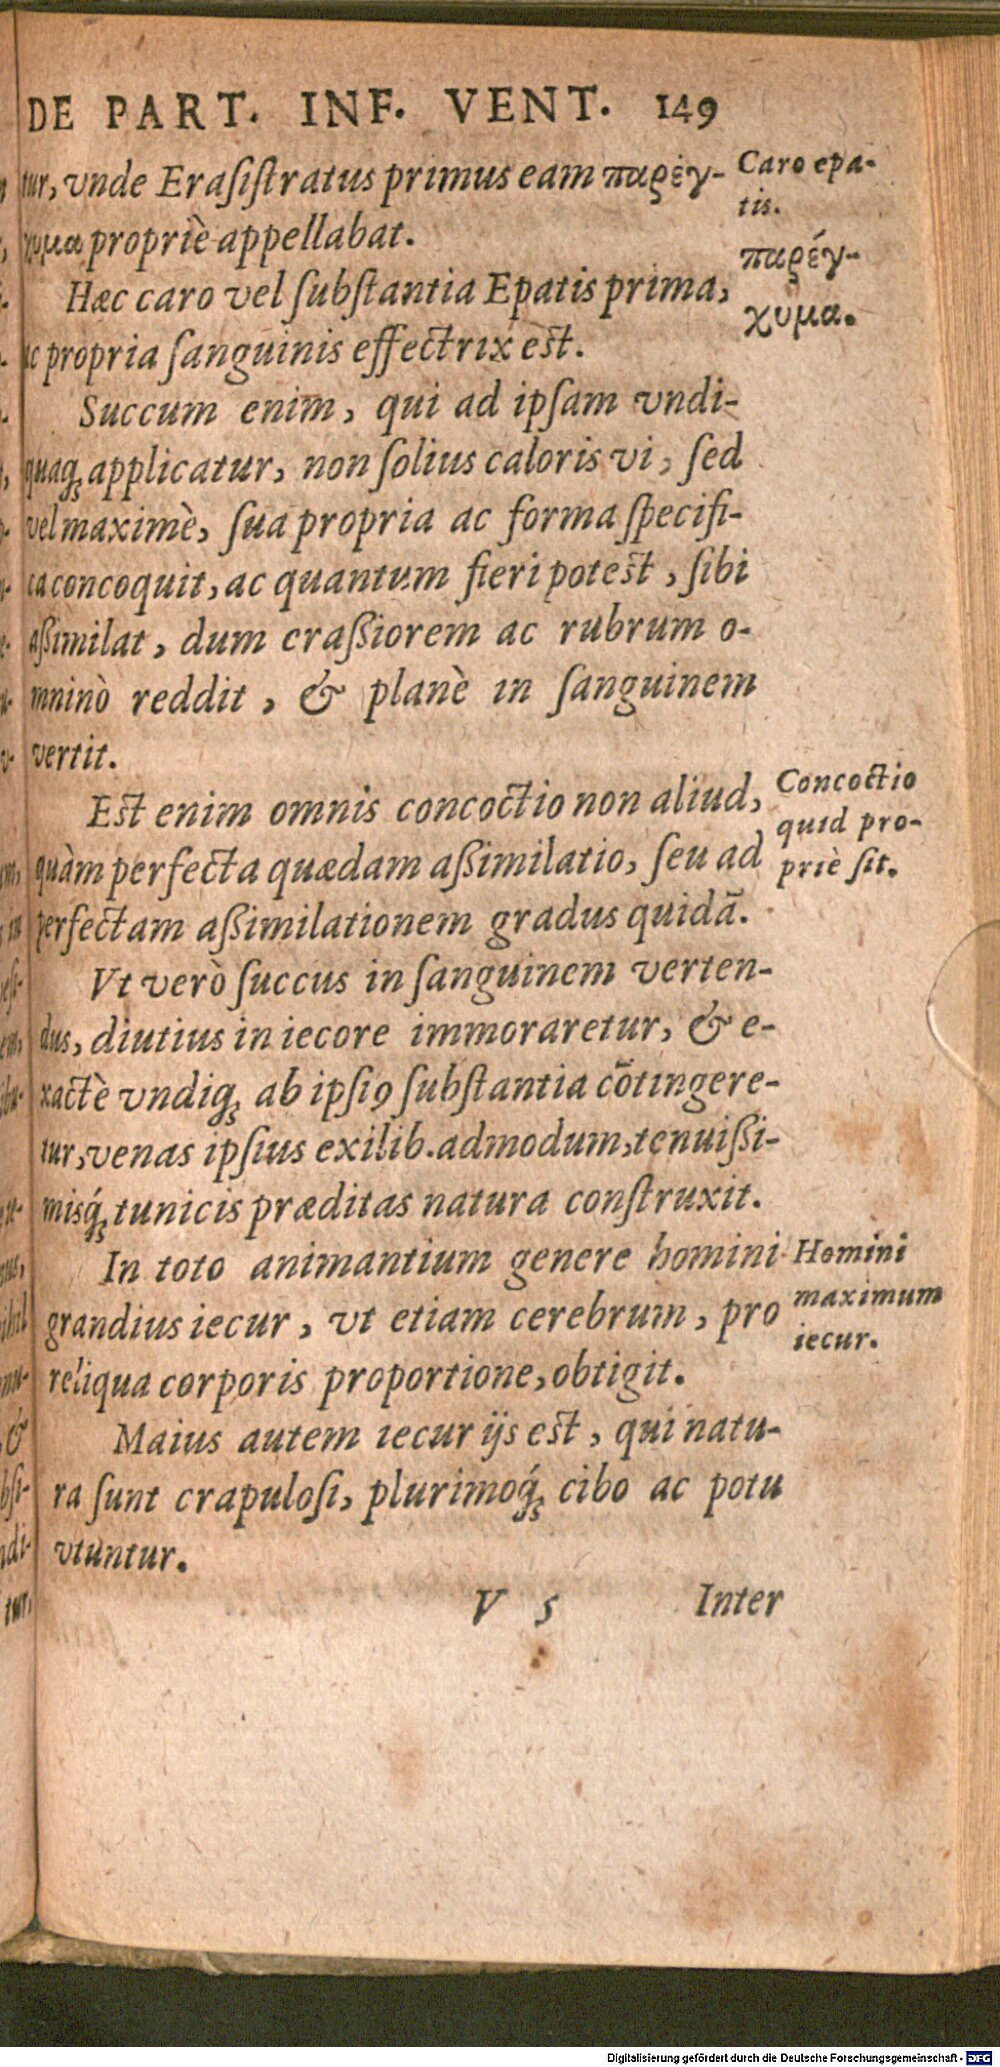 DE PART. INF. VENT. 149
tur, vnde Eraſiſtratus primus eam παρέγ-
χυμα propriè appellabat.
Caro epa-
tis.
παρέγ-
χυμα.
Hæc caro vel ſubſtantia Epatis prima,
ac propria ſanguinis effectrix est.
Succum enim, qui ad ipſam vndi-
quaq; applicatur, non ſolius caloris vi, ſed
vel maximè, ſua propria ac forma ſpecifi-
ca concoquit, ac quantum fieri potest, ſibi
aßimilat, dum craßiorem ac rubrum o-
mninò reddit, & planè in ſanguinem
vertit.
Est enim omnis concoctio non aliud,
quàm perfecta quædam aßimilatio, ſeu ad
perfectam aßimilationem gradus quidā.
Concoctio
quid pro-
priè ſit.
Vt verò ſuccus in ſanguinem verten-
dus, diutius in iecore immoraretur, & e-
xactè vndiq; ab ipſiꝰ ſubſtantia cōtingere-
tur, venas ipſius exilib. admodum, tenuißi-
misq́; tunicis præditas natura conſtruxit.
In toto animantium genere homini
grandius iecur, vt etiam cerebrum, pro
reliqua corporis proportione, obtigit.
Homini
maximum
iecur.
Maius autem iecur ijs est, qui natu-
ra ſunt crapuloſi, plurimoq́; cibo ac potu
vtuntur.
V 5 Inter
Digitalisierung gefördert durch die Deutsche Forschungsgemeinschaft - DFG